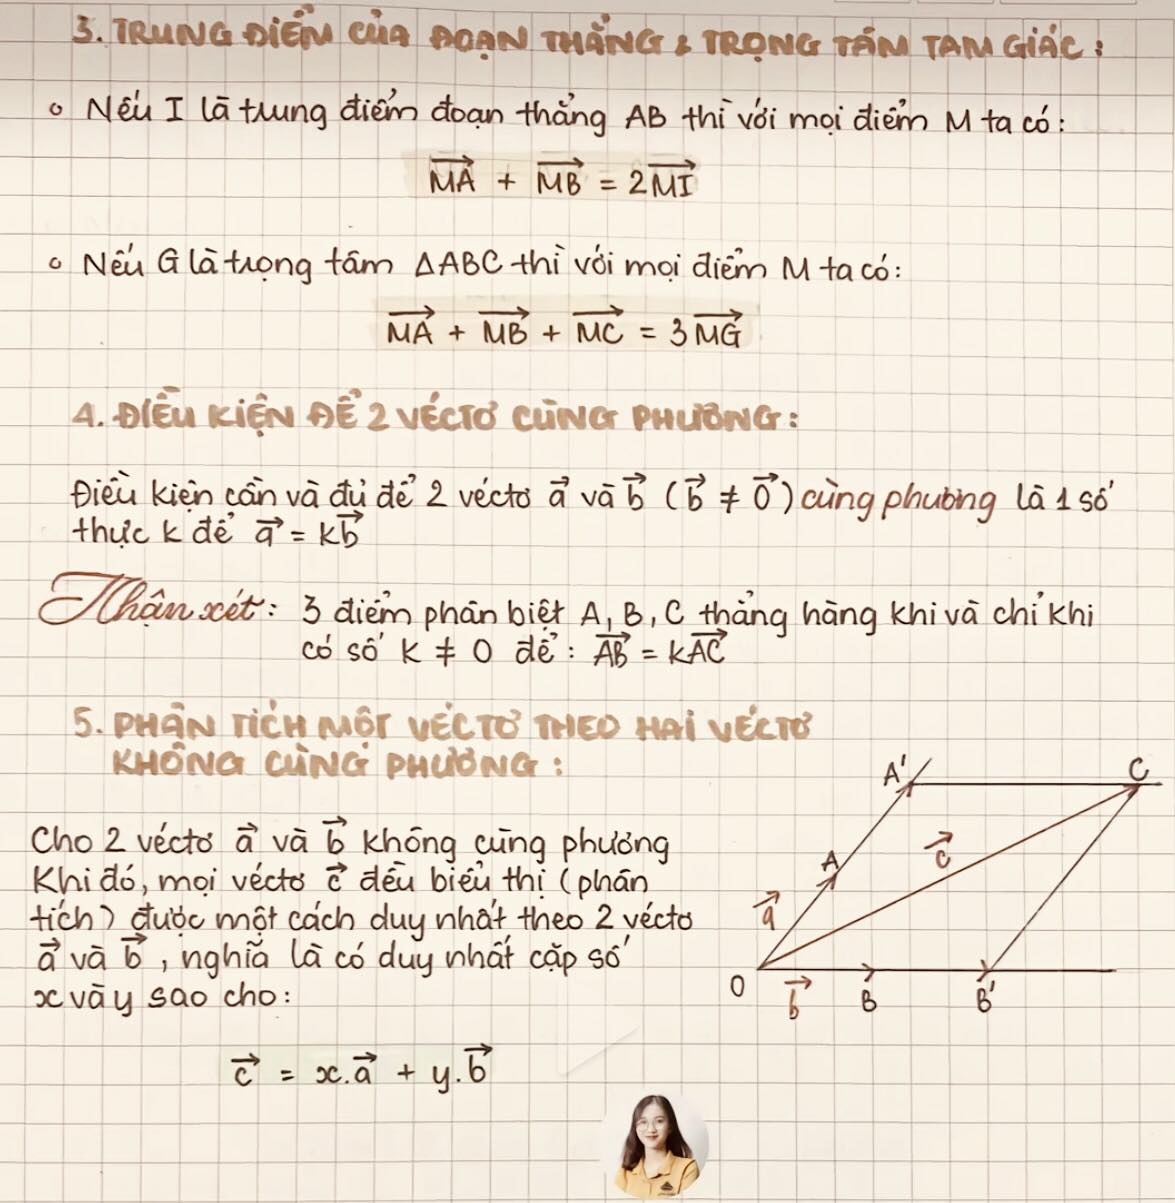 3. TRUNG ĐIỂM CỦA ĐOẠN THẲNG & TRỌNG TÂM TAM GIÁC:
Nếu I là trung điểm đoạn thẳng AB thì với mọi điểm M ta có:
$\overrightarrow{MA} + \overrightarrow{MB} = 2\overrightarrow{MI}$
Nếu G là trọng tâm ΔABC thì với mọi điểm M ta có:
$\overrightarrow{MA} + \overrightarrow{MB} + \overrightarrow{MC} = 3\overrightarrow{MG}$
4. ĐIỀU KIỆN ĐỂ 2 VÉCTƠ CÙNG PHƯƠNG:
Điều kiện cần và đủ để 2 véctơ $\vec{a}$ và $\vec{b}$ ($\vec{b} \neq \vec{0}$) cùng phương là 1 số
thực k để $\vec{a} = k\vec{b}$
Nhận xét: 3 điểm phân biệt A, B, C thẳng hàng khi và chỉ khi
có số k ≠ 0 để: $\overrightarrow{AB} = k\overrightarrow{AC}$
5. PHÂN TÍCH MỘT VÉCTƠ THEO HAI VÉCTƠ
KHÔNG CÙNG PHƯƠNG:
Cho 2 véctơ $\vec{a}$ và $\vec{b}$ không cùng phương
Khi đó, mọi véctơ $\vec{c}$ đều biểu thị (phân
tích) được một cách duy nhất theo 2 véctơ
$\vec{a}$ và $\vec{b}$, nghĩa là có duy nhất cặp số
x và y sao cho:
$\vec{c} = x.\vec{a} + y.\vec{b}$
A'
C
A
$\vec{c}$
$\vec{a}$
O
$\vec{b}$
B
B'